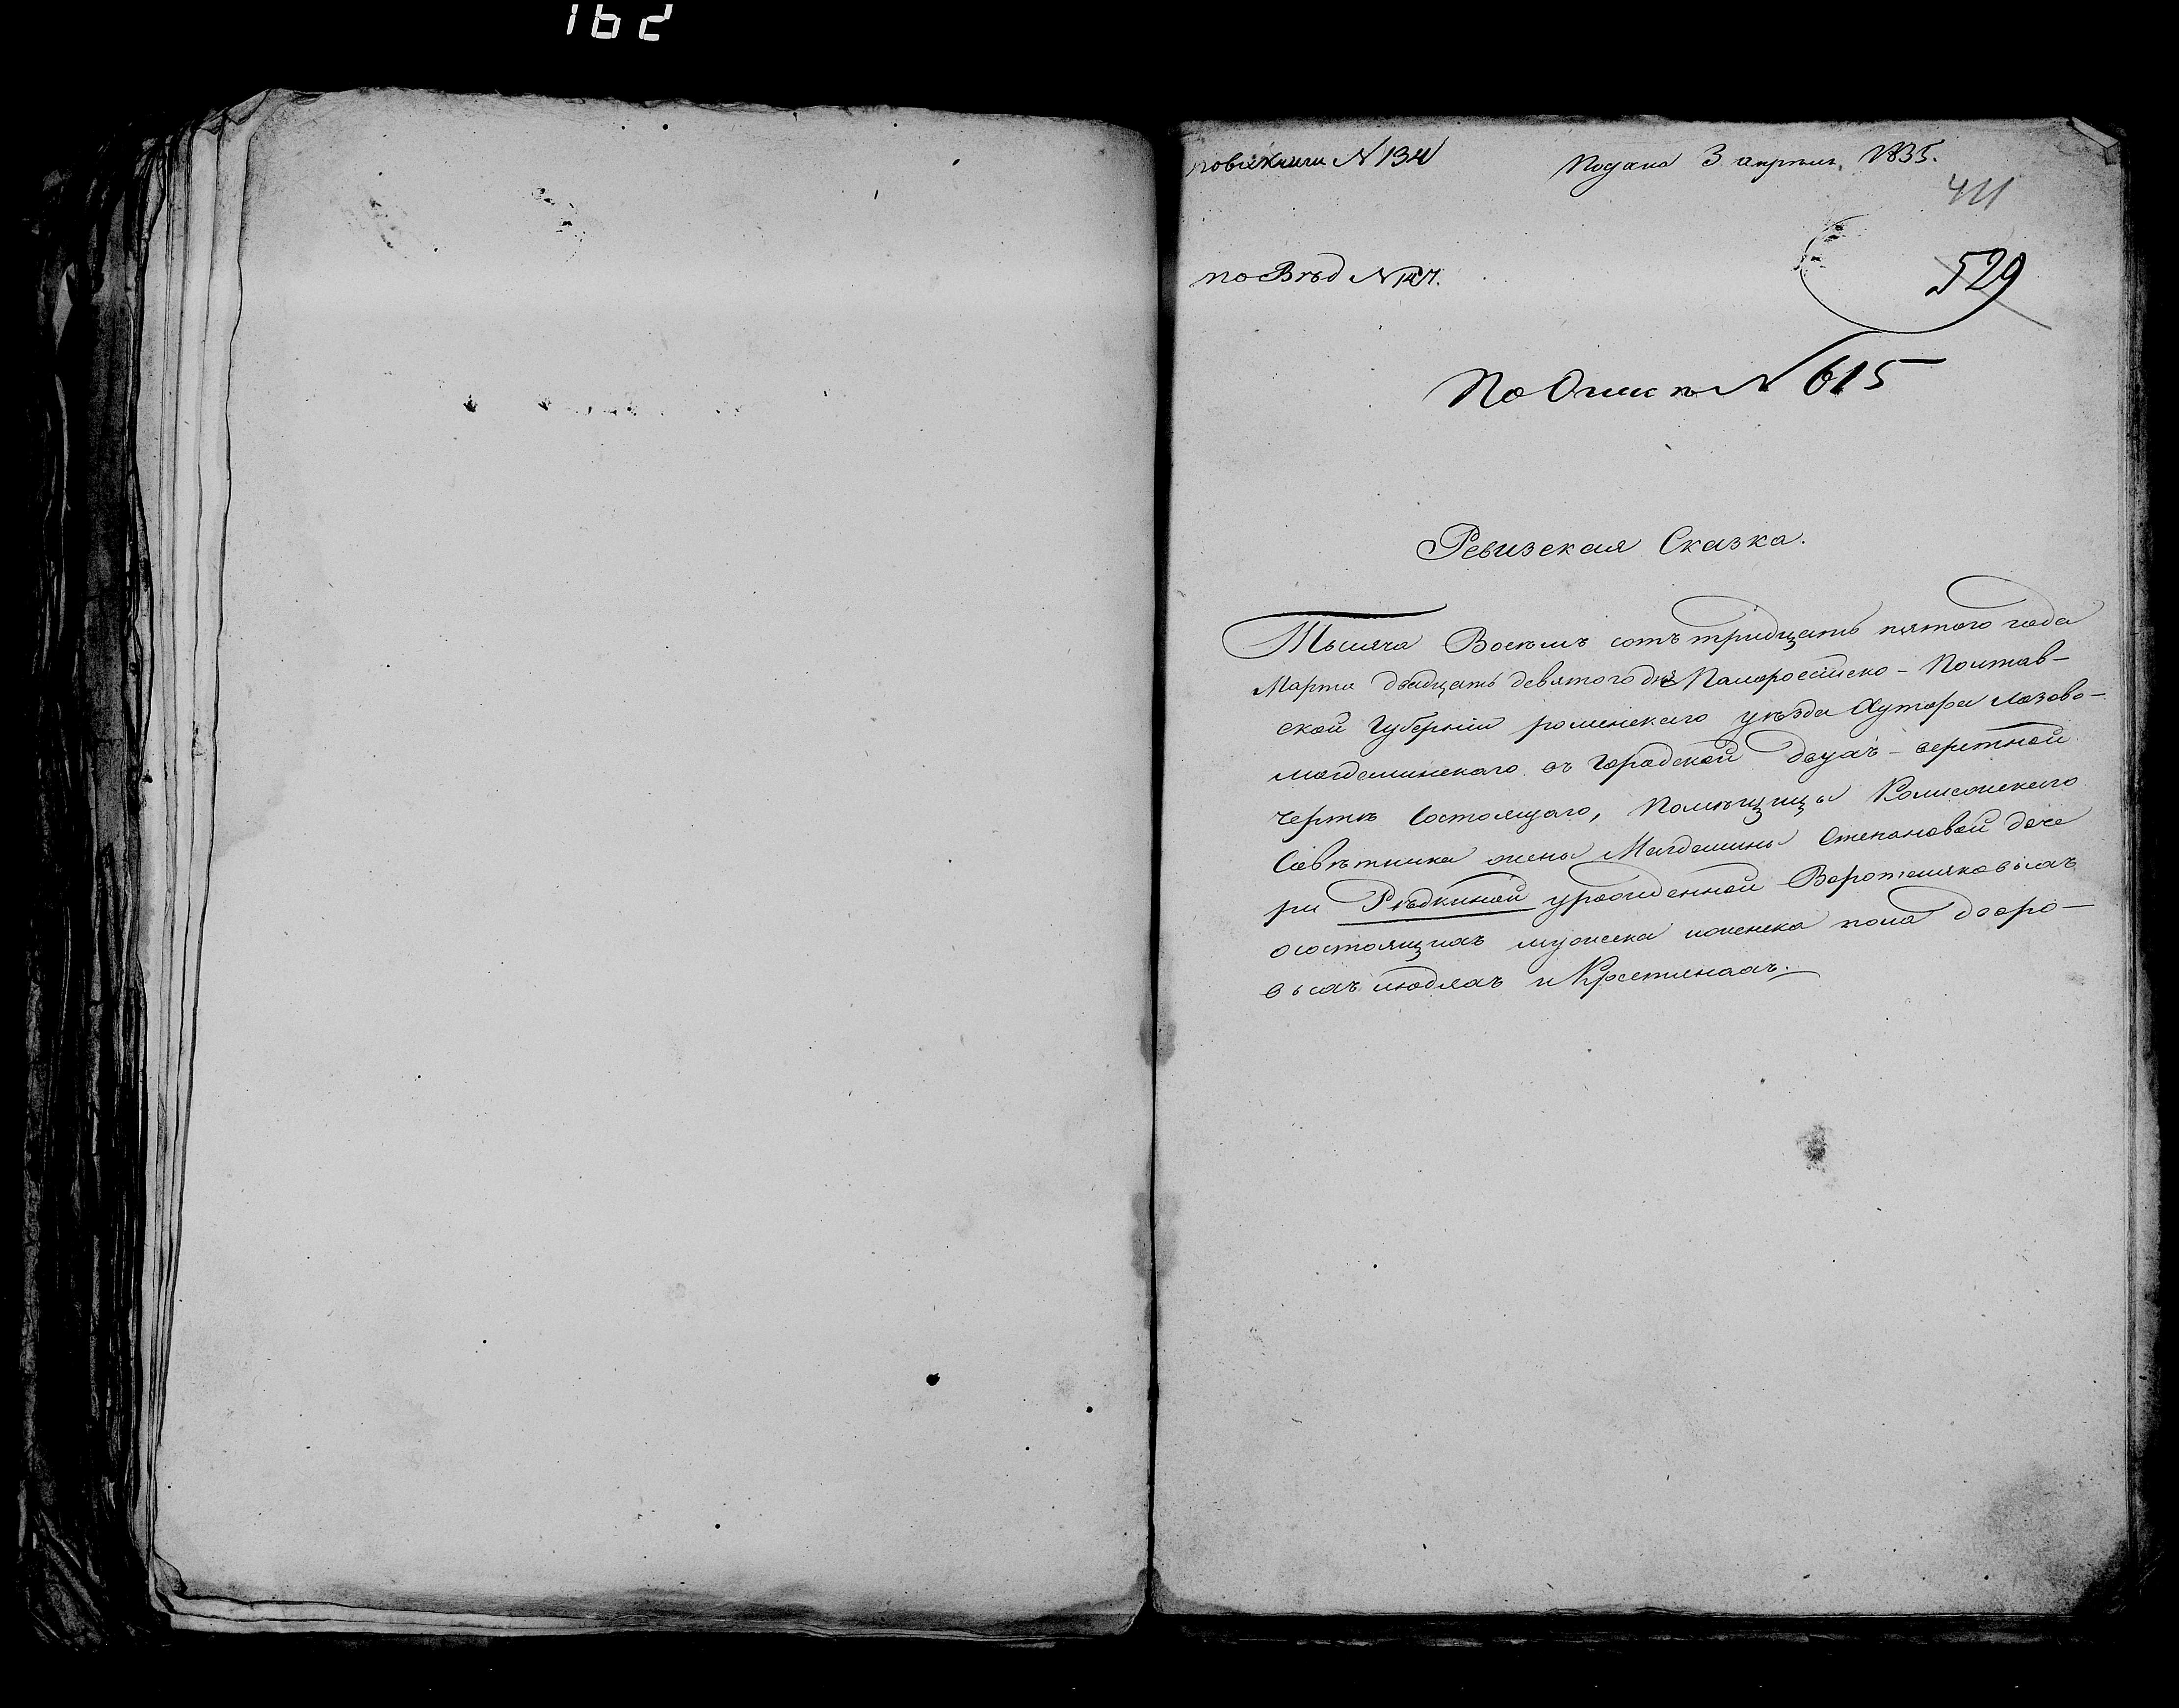 162
по вх книги N 134
Подана 3 апреля 1835.
411
529
по Вѣд N 147.
По Описѣ N 615
Ревизская Сказка.
Тысяча Восѣмъ сотъ тридцать пятого года
Марта двадцать девятого дня Малоросійско-Полтав-
ской Губерніи роменского уѣзда Хутора Лозово-
магдалинского въ Городской двухъ-верстной
чертѣ Состоящаго, Помѣщицы Колисожского
Совѣтника жены Магдалины Степановой доче
ри Рѣдкиной урожденной
о состоящихъ мужеска и женска пола дворо-
выхъ людяхъ и Крестьянахъ.